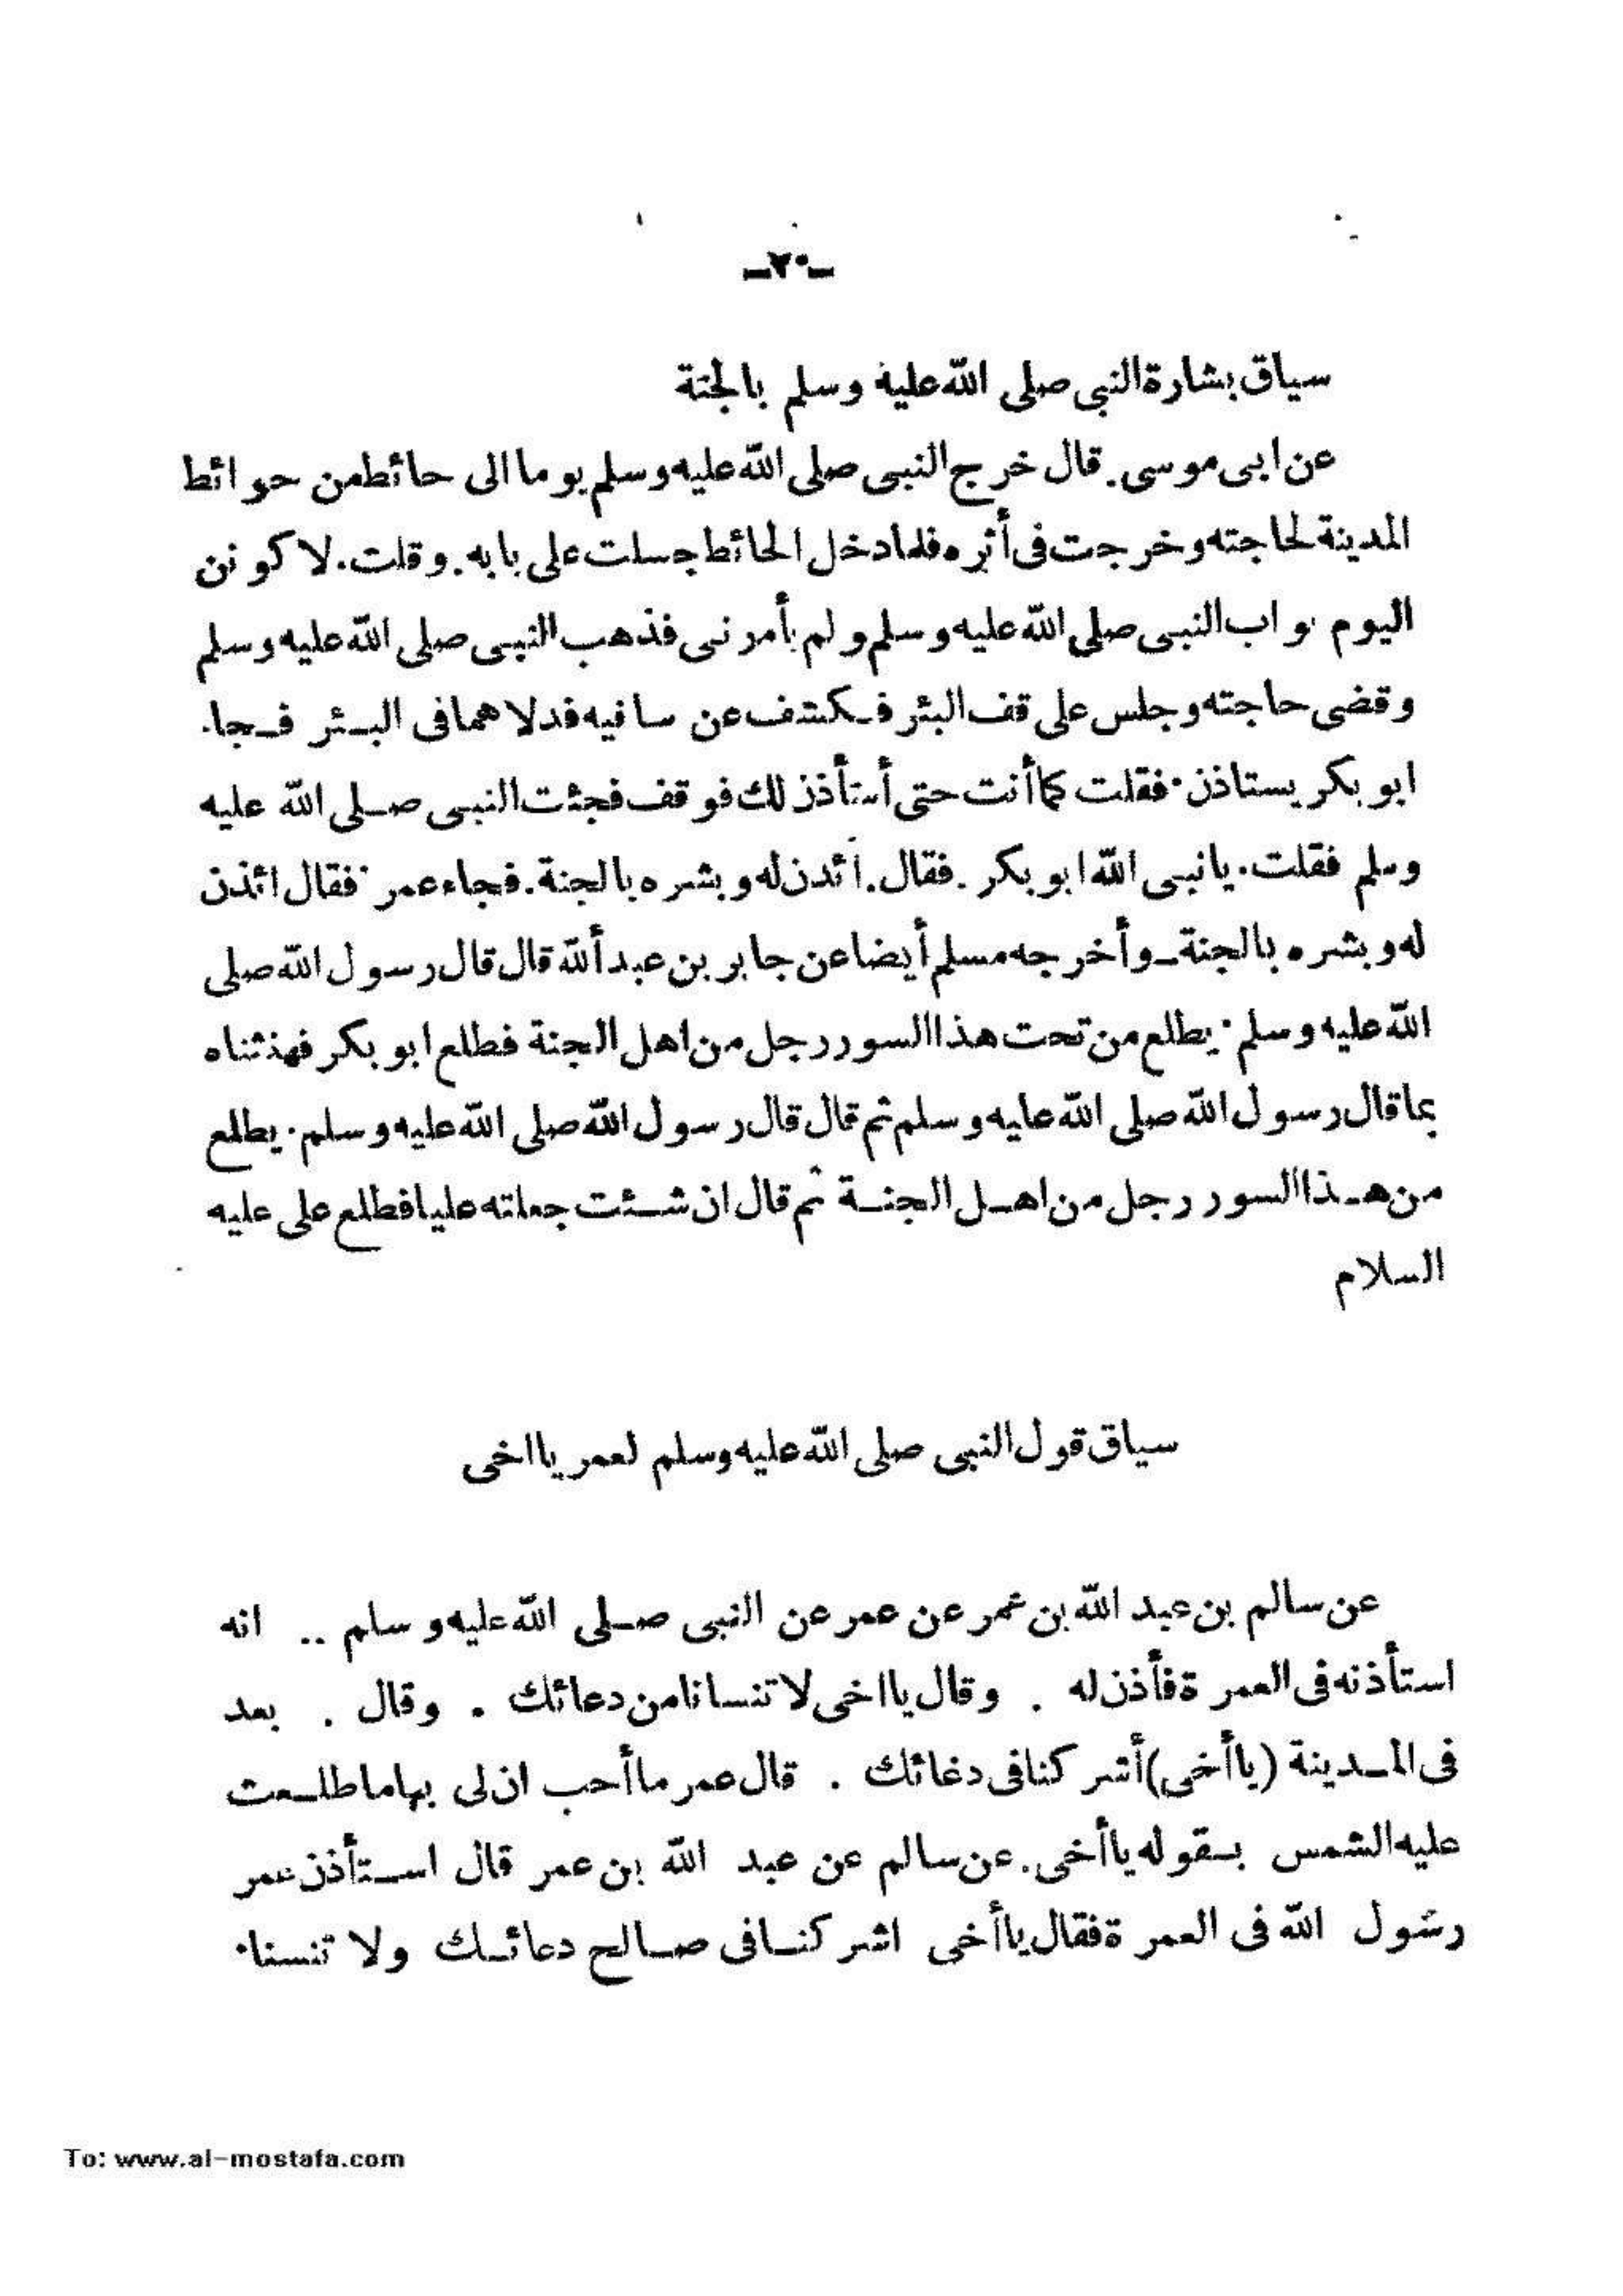 ـ٢٠ـ
سياق بشارة النبى صلى الله عليه وسلم بالجنة
عن ابى موسى. قال خرج النبى صلى الله عليه وسلم يوما الى حائط من حوائط
المدينة لحاجته وخرجت فى أثره فلما دخل الحائط جسلت على بابه. وقلت. لا كونن
اليوم بواب النبى صلى الله عليه وسلم ولم يأمرنى فذهب النبى صلى الله عليه وسلم
وقضى حاجته وجلس على قف البئر فـكشف عن ساقيه فدلاهما فى البـئر فـجا.
ابو بكر يستاذن. فقلت كما أنت حتى أستأذن لك فوقف فجئت النبى صـلى الله عليه
وسلم فقلت. يا نبى الله ابو بكر. فقال. أئدن له وبشره بالجنة. فجاء عمر. فقال ائذن
له وبشره بالجنة ـ وأخرجه مسلم أيضا عن جابر بن عبد ألله قال قال رسول الله صلى
الله عليه وسلم. يطلع من تحت هذا السور رجل من اهل الجنة فطلع ابو بكر فهذثناه
بما قال رسول الله صلى الله عليه وسلم ثم قال قال رسول الله صلى الله عليه وسلم. يطلع
من هـذا السور رجل من اهـل الجنـة ثم قال ان شـئت جعلته عليا فطلع على عليه
السلام
سياق قول النبى صلى الله عليه وسلم لعمر يا اخى
عن سالم بن عبد الله بن عمر عن عمر عن النبى صـلى الله عليه وسلم .. انه
استأذنه فى العمرة فأذن له . وقال يا اخى لا تنسانا من دعائك . وقال . بعد
فى المـدينة (يا أخى) أشركنا فى دغائك . قال عمر ما أحب ان لى بها ما طلـعت
عليه الشمس بـقوله يا أخى. عن سالم عن عبد الله بن عمر قال اسـتأذن عمر
رسول الله فى العمرة فقال يا أخى اشركنـا فى صـالح دعائـك ولا تنسنا.
To: www.al-mostafa.com